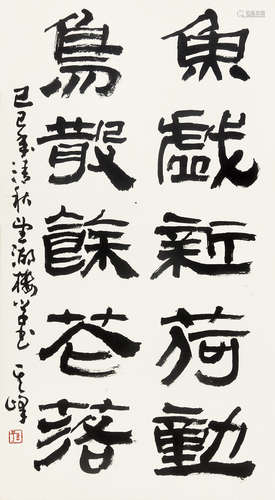 魚戲新荷動
鳥散餘花落
己巳年清秋望湖樓筆書 其峰